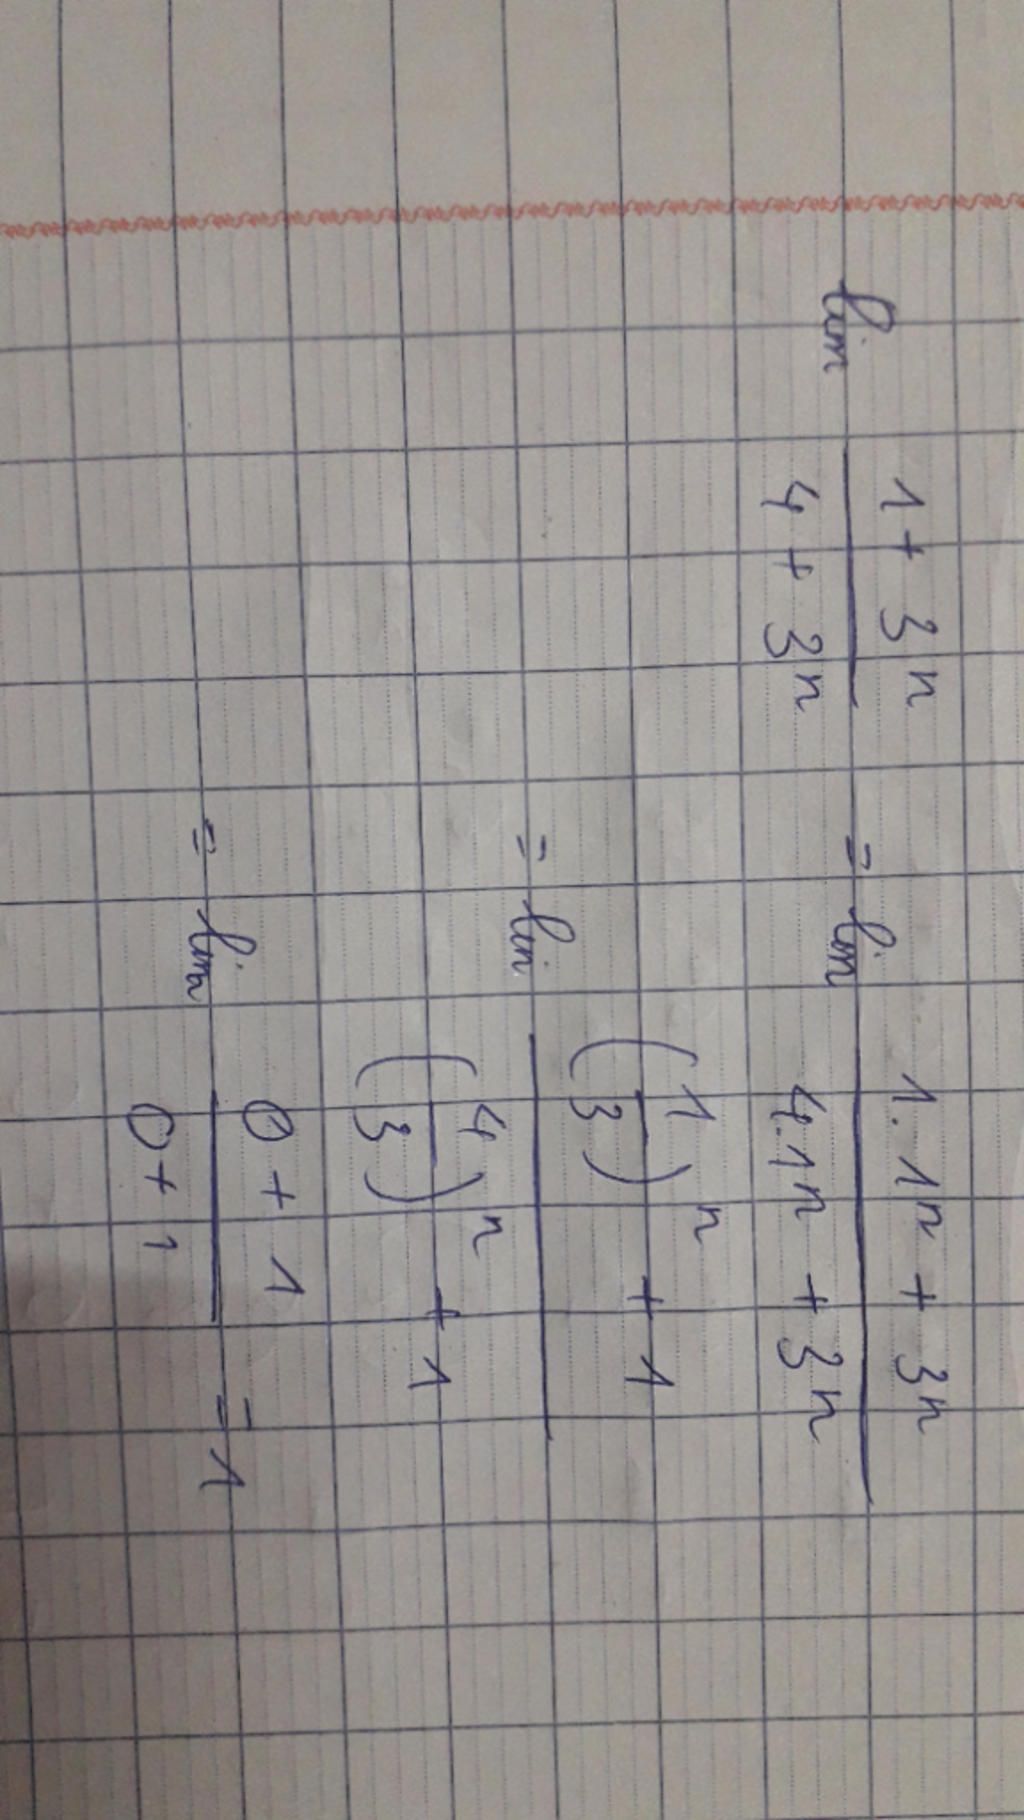 lim (1 + 3n)/(4 + 3n) = lim (1.1n + 3n)/(4.1n + 3n)
= lim ((1/3)^n + 1)/((4/3)^n + 1)
= lim (0 + 1)/(0 + 1) = 1